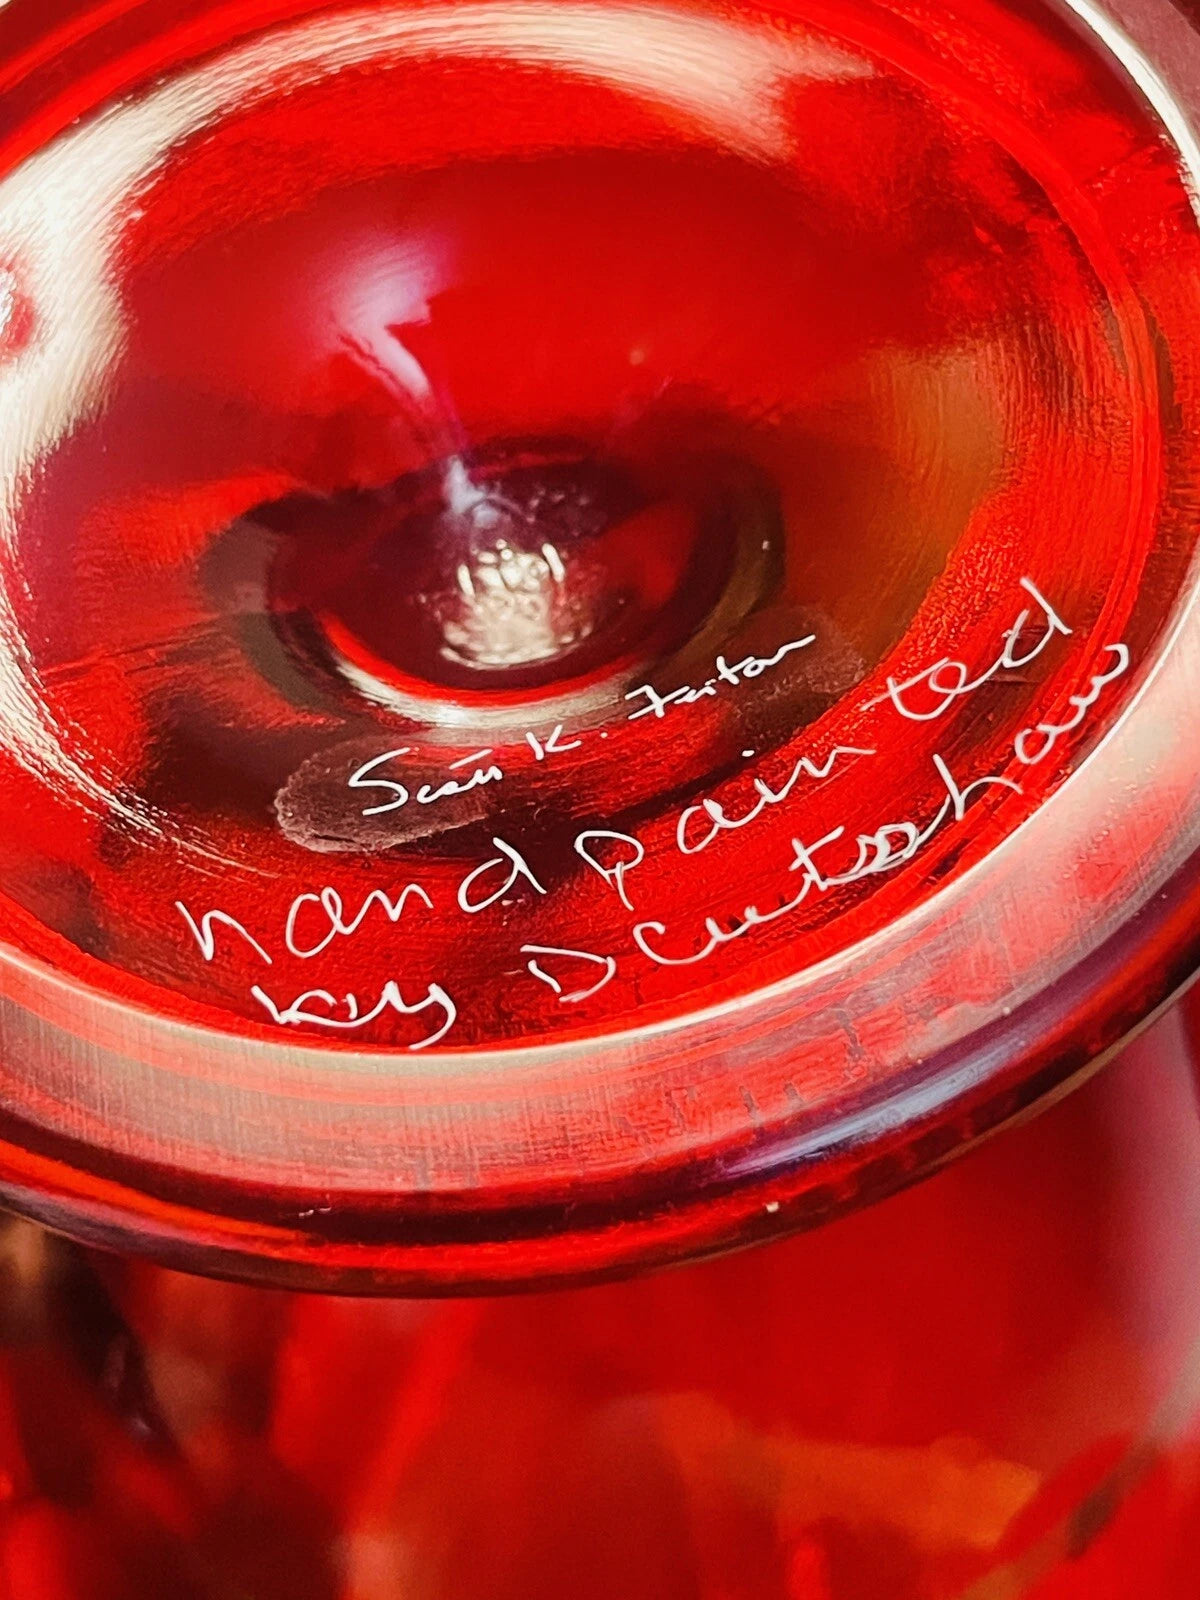 Scott K. Fenton
hand painted
by D Cutshaw